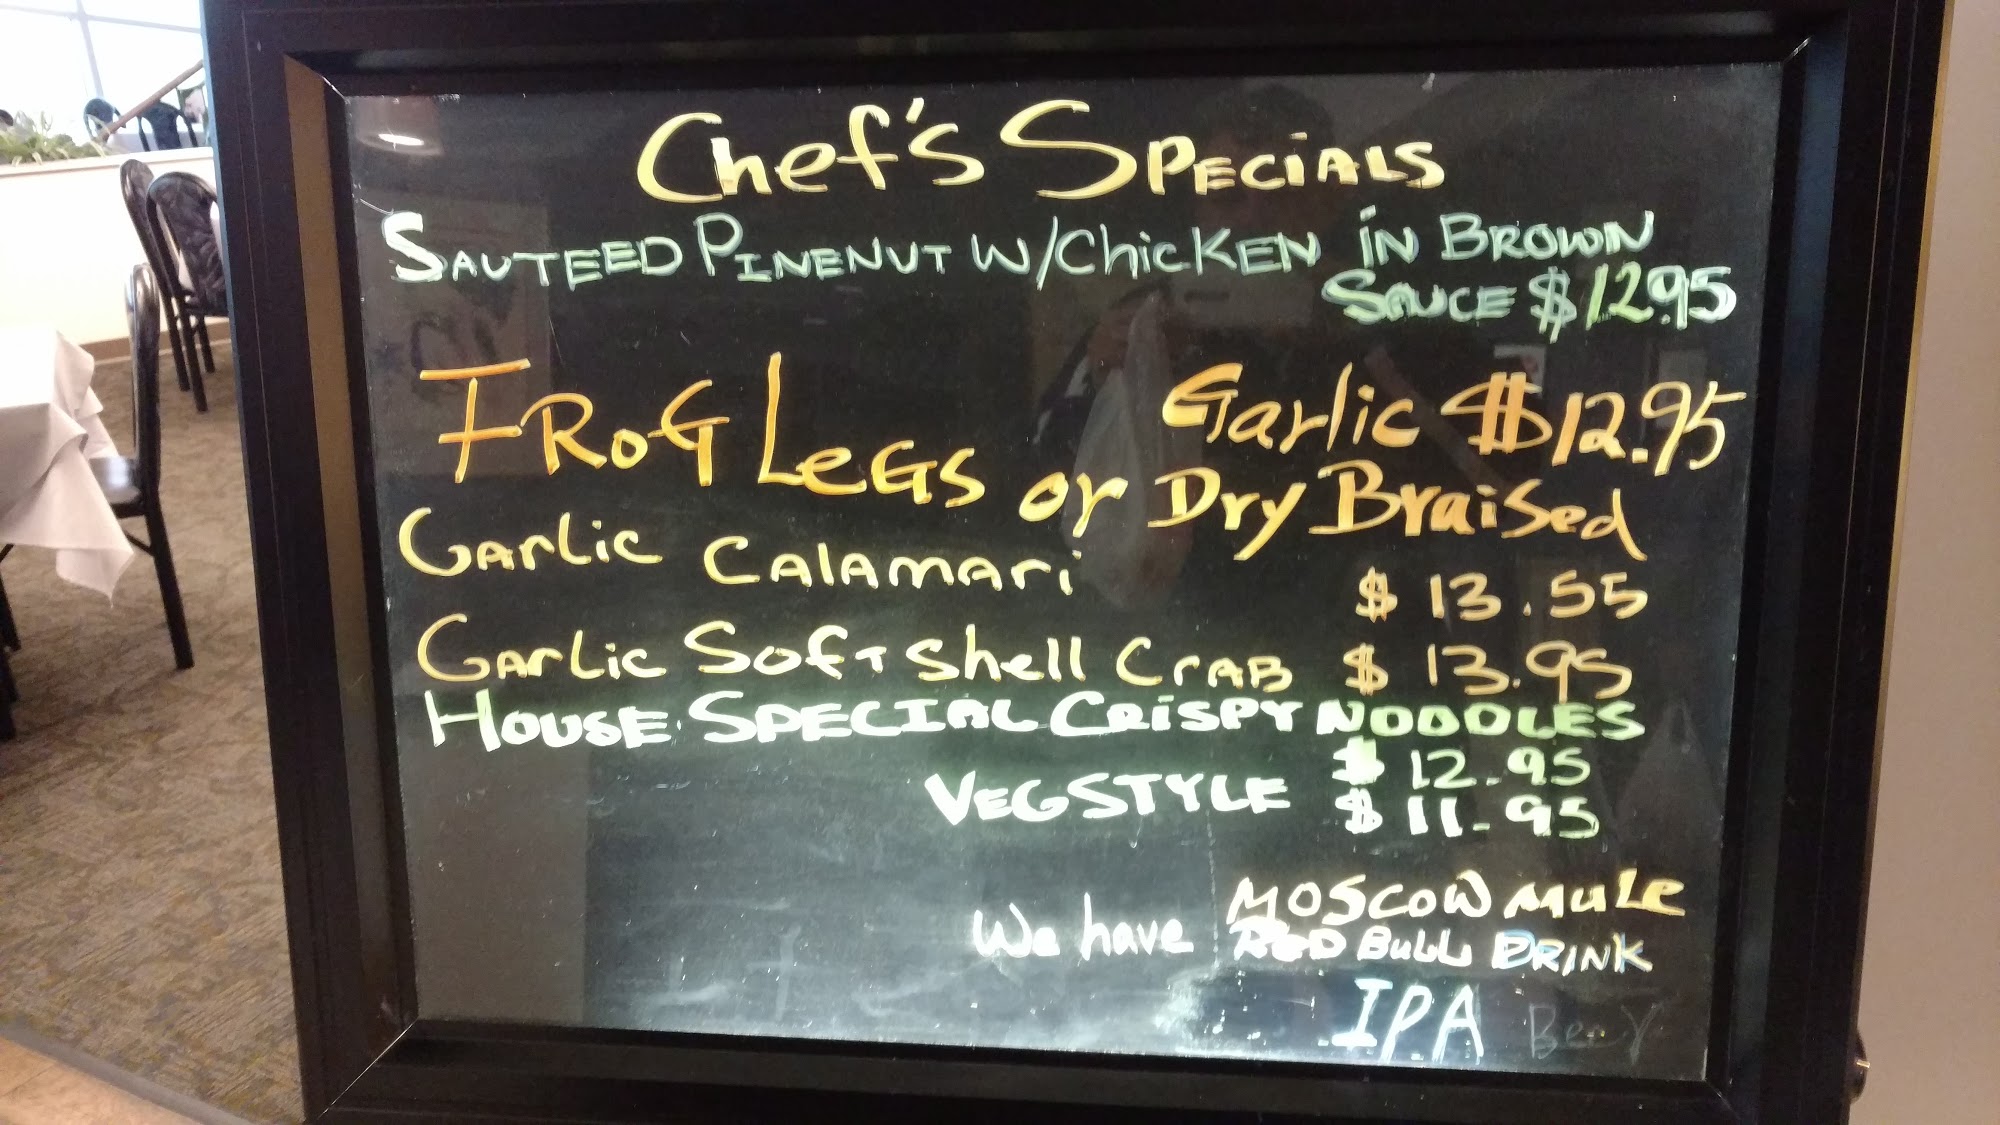 Chef's Specials
Sauteed Pinenut w/Chicken in Brown
Sauce $12.95
Frog Legs Garlic $12.95
or Dry Braised
Garlic Calamari $13.55
Garlic Soft Shell Crab $13.95
House Special Crispy Noodles
$12.95
Veg Style $11.95
We have Moscow Mule
Red Bull Drink
IPA